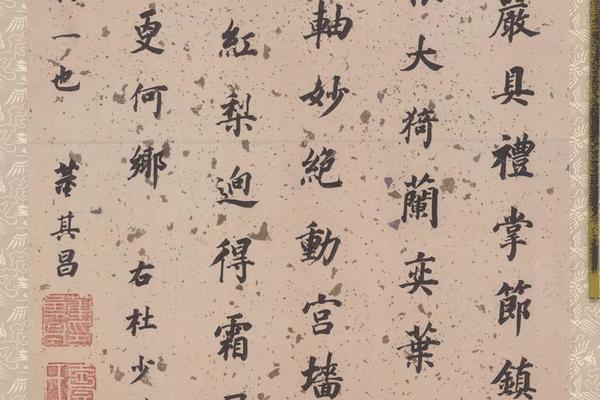 嚴具禮掌節鎮
大猗蘭奕葉
軸妙絕動宮墻
紅梨迥得霜
更何鄉
右杜少
一也
董其昌